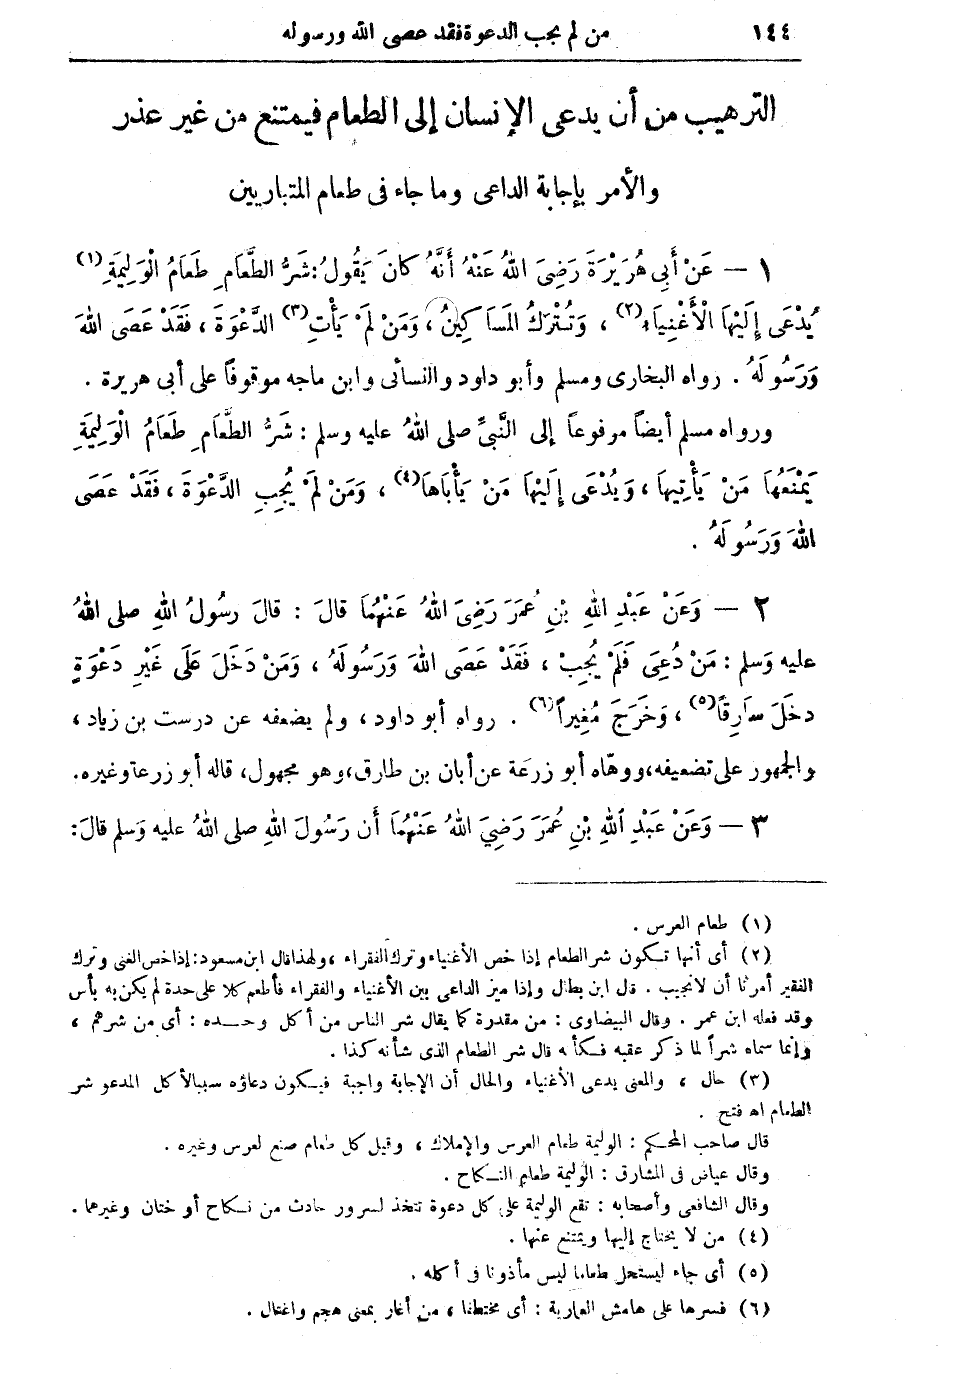 ١٤٤ من لم يجب الدعوة فقد عصى الله ورسوله
الترهيب من أن يدعى الإنسان إلى الطعام فيمتنع من غير عذر
والأمر بإجابة الداعى وما جاء فى طعام المتباريين
١ — عَنْ أَبِى هُرَيْرَةَ رَضِىَ اللهُ عَنْهُ أَنَّهُ كَانَ يَقُولُ: شَرُّ الطَّعَامِ طَعَامُ الْوَلِيمَةِ (١)
يُدْعَى إِلَيْهَا الْأَغْنِيَاءُ (٢) ، وَتُتْرَكُ المَسَاكِينُ ، وَمَنْ لَمْ يَأْتِ (٣) الدَّعْوَةَ ، فَقَدْ عَصَى اللهَ
وَرَسُولَهُ . رواه البخارى ومسلم وأبو داود والنسائى وابن ماجه موقوفاً على أبى هريرة .
ورواه مسلم أيضاً مرفوعاً إلى النَّبِىِّ صلى اللهُ عليه وسلم : شَرُّ الطَّعَامِ طَعَامُ الْوَلِيمَةِ
يَمْنَعُهَا مَنْ يَأْتِيهَا ، وَيُدْعَى إِلَيْهَا مَنْ يَأْبَاهَا (٤) ، وَمَنْ لَمْ يُجِبِ الدَّعْوَةَ ، فَقَدْ عَصَى
اللهَ وَرَسُولَهُ .
٢ — وَعَنْ عَبْدِ اللهِ بْنِ عُمَرَ رَضِىَ اللهُ عَنْهُمَا قَالَ : قَالَ رسُولُ اللهِ صلى اللهُ
عليه وَسلم : مَنْ دُعِىَ فَلَمْ يُجِبْ ، فَقَدْ عَصَى اللهَ وَرَسُولَهُ ، وَمَنْ دَخَلَ عَلَى غَيْرِ دَعْوَةٍ
دخَلَ سَارِقًا (٥) ، وَخَرَجَ مُغِيراً (٦) . رواه أبو داود ، ولم يضعفه عن درست بن زياد ،
والجمهور على تضعيفه ، ووهَّاه أبو زرعَة عن أبان بن طارق ، وهو مجهول ، قاله أبو زرعة وغيره .
٣ — وَعَنْ عَبْدِ اللهِ بْنِ عُمَرَ رَضِيَ اللهُ عَنْهُمَا أَن رَسُولَ اللهِ صلى اللهُ عليه وَسلم قَالَ :
(١) طعام العرس .
(٢) أى أنها تكون شر الطعام إذا خص الأغنياء وترك الفقراء ، ولهذا قال ابن مسعود : إذا خص الغنى وترك
الفقير أمرنا أن لا نجيب . قال ابن بطال وإذا ميز الداعى بين الأغنياء والفقراء فأطعم كلا على حدة لم يكن به بأس
وقد فعله ابن عمر . وقال البيضاوى : من مقدرة كما يقال شر الناس من أكل وحده : أى من شرهم ،
وإنما سماه شراً لما ذكر عقبه فكأنه قال شر الطعام الذى شأنه كذا .
(٣) حال ، والمعنى يدعى الأغنياء والحال أن الإجابة واجبة فيكون دعاؤه سببا لأكل المدعو شر
الطعام اه فتح .
قال صاحب المحكم : الوليمة طعام العرس والإملاك ، وقيل كل طعام صنع لعرس وغيره .
وقال عياض فى المشارق : الوليمة طعام النكاح .
وقال الشافعى وأصحابه : تقع الوليمة على كل دعوة تتخذ لسرور حادث من نكاح أو ختان وغيرهما .
(٤) من لا يحتاج إليها ويمتنع عنها .
(٥) أى جاء ليستحل طعاما ليس مأذونا فى أكله .
(٦) فسرها على هامش العمارية : أى مختطفا ، من أغار بمعنى هجم واغتال .